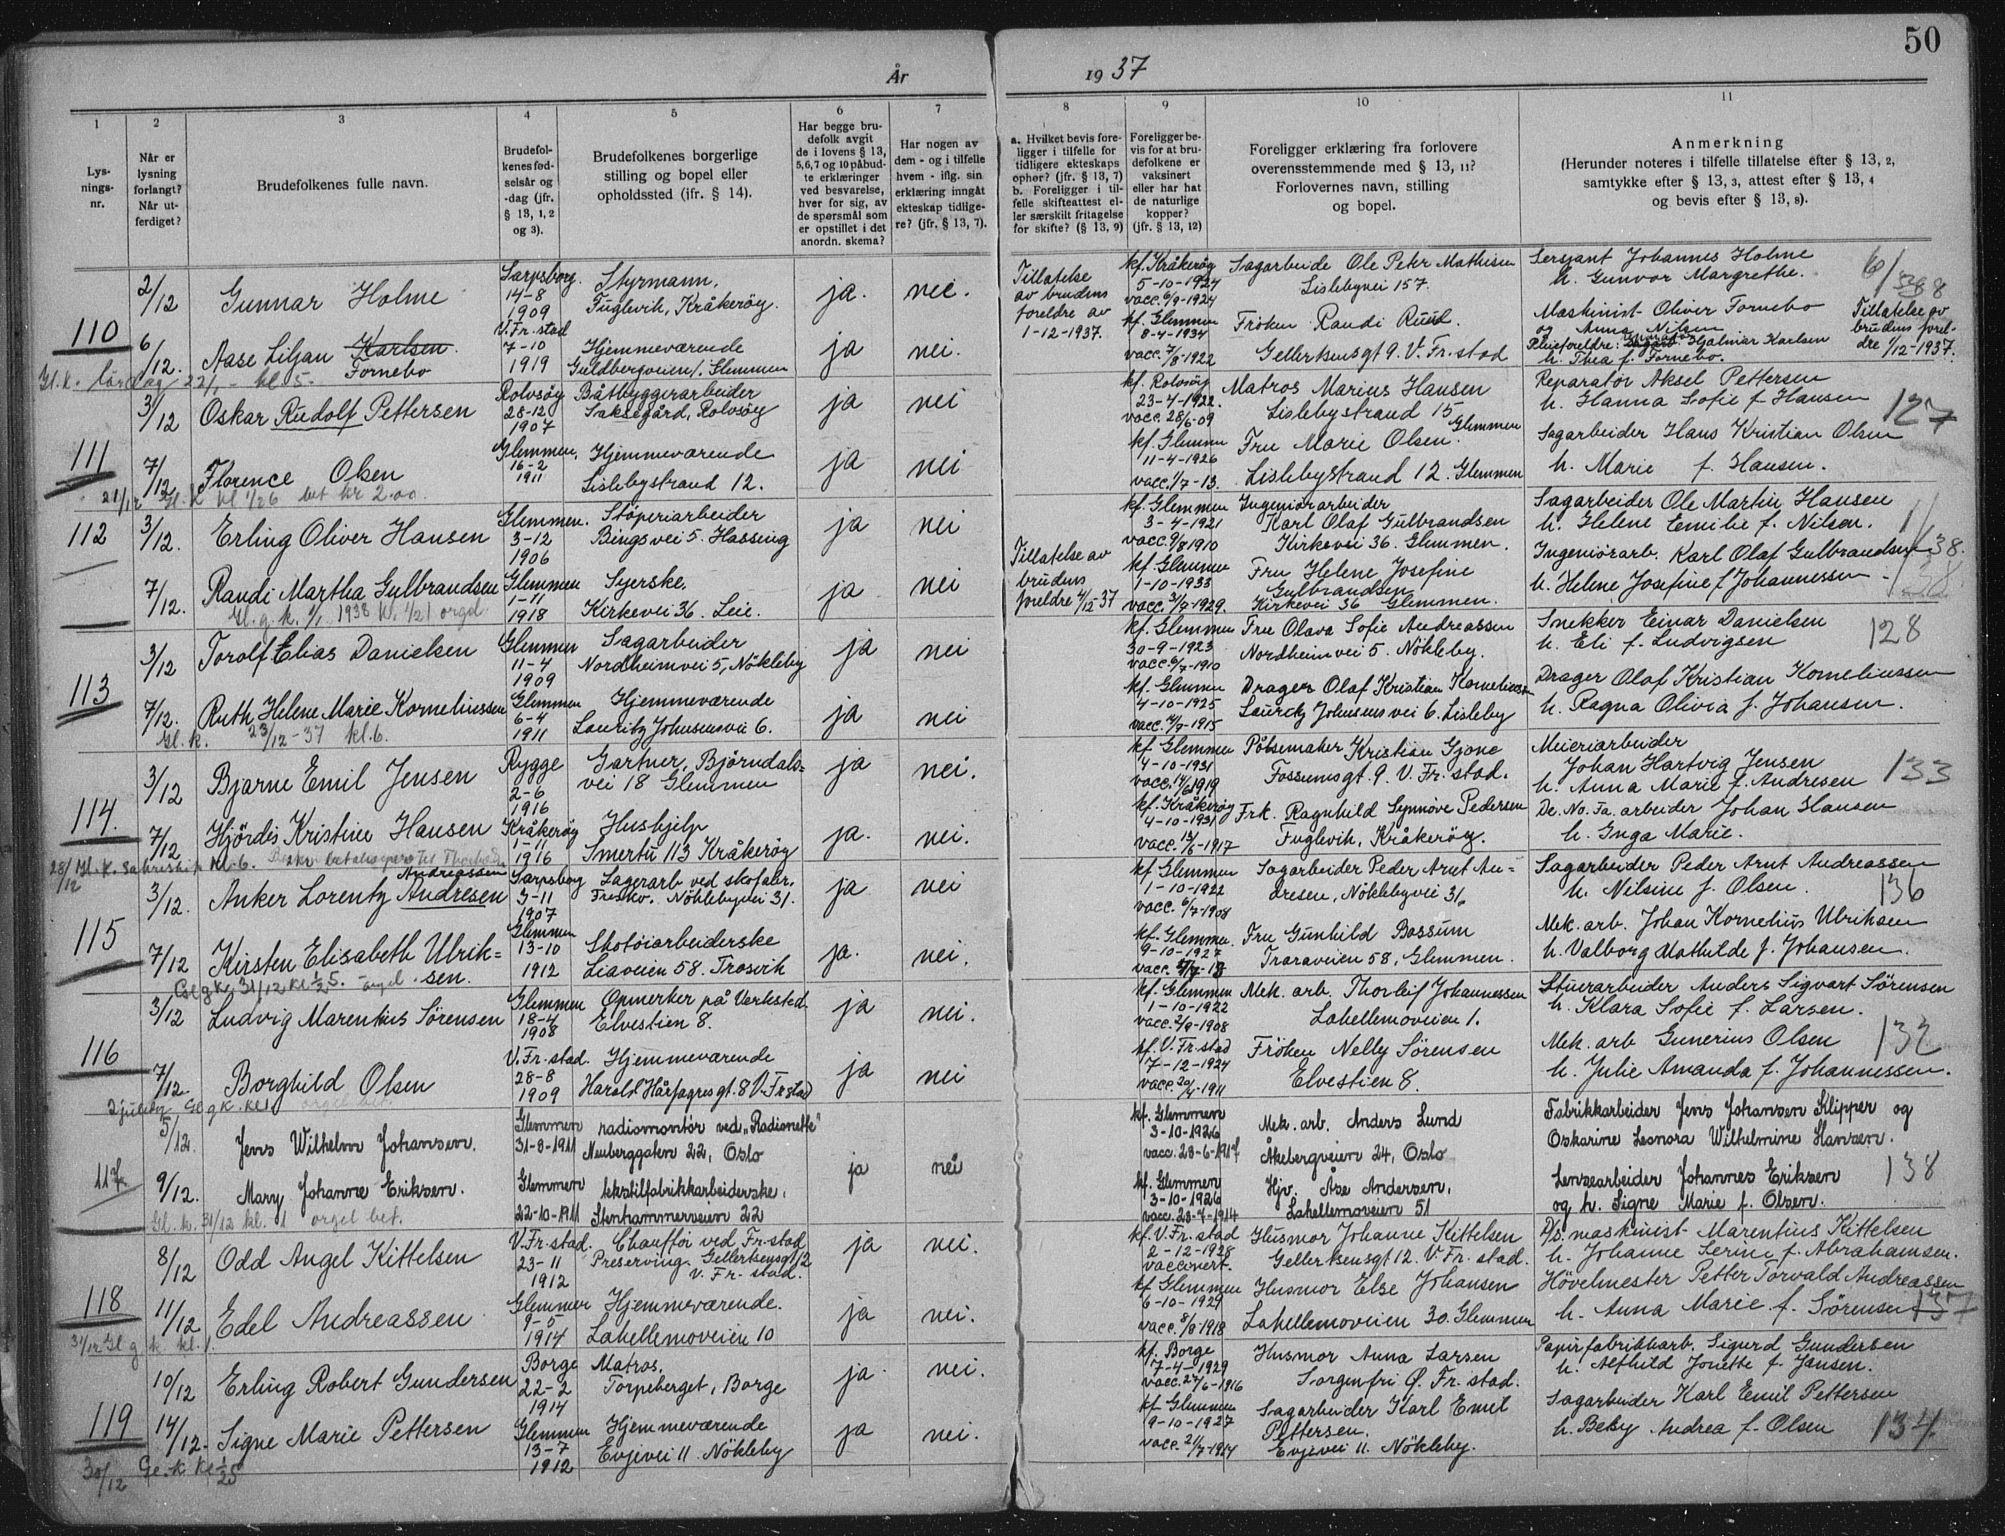 50
År 1937
1 2 3 4 5 6 7 8 9 10 11
Lys-
nings-
nr.
Når er
lysning
forlangt?
Når ut-
ferdiget?
Brudefolkenes fulle navn.
Brudefol-
kenes fød-
selsår og
-dag (jfr.
§ 13, 1, 2
og 3).
Brudefolkenes borgerlige
stilling og bopel eller
opholdssted (jfr. § 14).
Har begge bru-
defolk avgit
de i lovens § 13,
5, 6, 7 og 10 påbud-
te erklæringer
ved besvarelse,
hver for sig, av
de spørsmål som
er opstillet i det
anordn. skema?
Har nogen av
dem - og i tilfelle
hvem - iflg. sin
erklæring inngått
ekteskap tidlige-
re? (jfr. § 13, 7).
a. Hvilket bevis fore-
ligger i tilfelle for
tidligere ekteskaps
ophør? (jfr. § 13, 7)
b. Foreligger i til-
felle skifteattest el-
ler særskilt fritagelse
for skifte? (§ 13, 9)
Foreligger be-
vis for at bru-
defolkene er
vaksinert
eller har hat
de naturlige
kopper?
(jfr. § 13, 12)
Foreligger erklæring fra forlovere
overensstemmende med § 13, 11?
Forlovernes navn, stilling
og bopel.
Anmerkning
(Herunder noteres i tilfelle tillatelse efter § 13, 2,
samtykke efter § 13, 3, attest efter § 13, 4
og bevis efter § 13, 8).
110
2/12 Gunnar Holme
Sarpsborg
14-8
1909
Styrmann,
Fuglevik, Kråkerøy.
ja. nei.
Tillatelse
av brudens
foreldre av
1-12-1937.
kf. Kråkerøy
5-10-1924
vacc. 6/9-1924
Sagarbeide Ole Peter Mathisen
Lislebyvei 157.
Sersjant Johannes Holme
h. Gunvor Margrethe.
6/
6/12. Aase Liljan Karlsen.
Fornebo
V. Fr.stad
7-10
1919
Hjemmeværende
Guldbergveien 1, Glemmen
ja nei.
kf. Glemmen
8-4-1934
vacc. 7/8-1922
Frøken Randi Ruud.
Gellertsensgt 9. V. Fr. stad
Maskinist Oliver Fornebo
og Anna Nilsen
Pleieforeldre: Hjalmar Karlsen
h. Thea f. Fornebo.
Tillatelse av
brudens forel-
dre 1/12-1937.
Gl. k. lørdag 22/1 - kl 5.
111
3/12 Oskar Rudolf Pettersen
Rolvsøy
28-12
1907
Båtbyggerarbeider
Saksegård, Rolvsøy
ja nei
kf. Rolvsøy
23-4-1922.
vacc. 28/6-09
Matros Marius Hansen
Lislebystrand 15
Glemmen
Reparatør Aksel Pettersen
h. Hanna Sofie f Hansen
127
7/12 Florence Olsen
Glemmen.
16-2
1911
Hjemmeværende
Lislebystrand 12.
ja nei
kf. Glemmen
11-4-1926
vacc. 1/7-13.
Fru Marie Olsen.
Lislebystrand 12. Glemmen
Sagarbeider Hans Kristian Olsen
h. Marie f. Hansen.
21/12 Gl. k kl 1/26 bet kr 2.00.
112
3/12. Erling Oliver Hansen
Glemmen.
3-12
1906
Støperiarbeider
Bingsvei 5. Hassing
ja nei
kf. Glemmen
3-4-1921
vacc. 9/8 1910
Ingeniørarbeider
Karl Olaf Gulbrandsen
Kirkevei 36. Glemmen.
Sagarbeider Ole Martin Hansen
h. Helene Emilie f. Nilsen.
7/12. Randi Martha Gulbrandsen
Glemmen
1-11
1918
Syerske.
Kirkevei 36. Leie.
ja nei
Tillatelse av
brudens
foreldre 4/12 37
kf. Glemmen
1-10-1933
vacc. 3/9-1929.
Fru Helene Josefine
Gulbrandsen
Kirkevei 36 Glemmen.
Ingeniørarb. Karl Olaf Gulbrandsen
h. Helene Josefine f Johannessen
38.
Gl. g. k. 1/1 1938 kl. 1/21 orgel
113
3/12 Torolf Elias Danielsen
Glemmen
11-4
1909
Sagarbeider
Nordheimvei 5, Nøkleby
ja nei
kf. Glemmen
30-9-1923
vacc 6/7-1910
Fru Olava Sofie Andreassen
Nordheimvei 5. Nøkleby.
Snekker Einar Danielsen
h. Eli f. Ludvigsen
128
7/12. Ruth Helene Marie Korneliussen
Glemmen
6-4
1911
Hjemmeværende
Lauritz Johnsensvei 6.
ja nei
kf. Glemmen
4-10-1925
vacc. 14/9-1915
Drager Olaf Kristian Korneliussen
Lauritz Johnsens vei 6. Lisleby
Drager Olaf Kristian Korneliussen
h. Ragna Olivia f. Johansen.
Gl. k. 23/12-37 kl. 6.
114.
3/12 Bjarne Emil Jensen
Rygge
2-6
1916
Gartner, Bjørndals-
vei 18 Glemmen
ja nei.
kf. Glemmen
4-10-1931
vacc. 14/6 1919
Pølsemaker Kristian Gjone
Fossumsgt 9. V. Fr. stad.
Meieriarbeider
Johan Hartvig Jensen
h. Anna Marie f. Andresen
133
7/12 Hjørdis Kristine Hansen
Kråkerøy
1-11
1916
Hushjelp
Smertu 113 Kråkerøy
ja. nei.
kf. Kråkerøy
4-10-1931
vacc. 13/6-1917
Frk. Ragnhild Synnøve Pedersen
Fuglevik, Kråkerøy.
De. No. Fa. arbeider Johan Hansen
h. Inga Marie.
28/12 Gl. k. Sakristi kl. 6.
115
3/12. Anker Lorentz Andresen
Andreassen
Sarpsborg
3-11
1907
Lagerarb ved skofabr.
Fresko. Nøklebyvei 31.
ja nei
kf. Glemmen
1-10-1922
vacc. 6/7-1908
Sagarbeider Peder Arnt An-
dresen, Nøklebyvei 31.
Sagarbeider Peder Arnt Andreassen
h. Nilsine f. Olsen.
136
7/12 Kirsten Elisabeth Ulrik-
sen.
Glemmen
13-10
1912
Skotøiarbeiderske
Liaveien 58. Trosvik
ja. nei.
kf. Glemmen
9-10-1927
Fru Gunhild Bossum
Traraveien 58, Glemmen.
Mek. arb. Johan Kornelius Ulriksen
h. Valborg Mathilde f. Johansen.
31/12 orgel
116
3/12 Ludvig Marentius Sørensen
Glemmen
18-4
1908
Opmerker på Verksted
Elvestien 8.
ja nei.
kf. Glemmen
1-10-1922
vacc. 2/9-1908
Mek. arb. Thorleif Johannessen
Lahellemoveien 1.
Stuerarbeider Anders Sigvart Sørensen
h. Klara Sofie f. Larsen.
132
7/12. Borghild Olsen
V. Fr. stad.
28-8
1909
Hjemmeværende
Harald Hårfagresgt. 8 V. Fr stad
ja nei
kf. V. Fr. stad
7-12-1924
vacc. 20/4-1911
Frøken Nelly Sørensen
Elvestien 8.
Mek. arb Gunerius Olsen
h. Julie Amanda f. Johannessen.
2 juledag Gl g k. kl 1 orgel bet.
117
5/12. Jens Wilhelm Johansen.
Glemmen
31-8-1911
radiomontør ved „Radionette"
Neuberggaten 22, Oslo
ja nei
kf. Glemmen
3-10-1926
vacc. 23-6-1917
Mek. arb. Anders Lund
Åkebergveien 24, Oslo
Fabrikkarbeider Jens Johansen Klipper og
Oskarine Leonora Wilhelmine Hansen.
9/12. Mary Johanne Eriksen.
Glemmen
22-10-1911
tekstilfabrikkarbeiderske,
Stenhammerveien 22
kf. Glemmen
3-10-1926
vacc. 23-7-1914
Hjv. Åse Andersen,
Lahellemoveien 51
Lensearbeider Johannes Eriksen
og h. Signe Marie f. Olsen.
138
Gl. k. 31/12 kl. 1 orgel bet.
118
8/12 Odd Angel Kittelsen
V. Fr. stad.
23-11
1912
Chauffør ved Fr. stad
Preserving. Gellertsensgt 12
V. Fr. stad.
ja nei.
kf. V. Fr. stad
2-12-1928
vaccinert.
Husmor Johanne Kittelsen
Gellertsensgt 12. V. Fr. stad.
D/s. maskinist Marentius Kittelsen
h. Johanne Serine f. Abrahamsen.
11/12 Edel Andreassen
Glemmen
9-5
1914
Hjemmeværende.
Lahellemoveien 10
ja nei.
kf Glemmen
6-10-1929
vacc. 8/8 1918
Husmor Else Johansen
Lahellemoveien 30. Glemmen
Høvelmester Petter Torvald Andreassen
h. Anna Marie f. Sørensen
137
31/12 Gl g. k. kl. 1.
119
10/12 Erling Robert Gundersen
Borge
22-2
1914
Matros,
Torpeberget, Borge
ja. nei.
kf. Borge
7-4-1929
vacc. 27/6-1916
Husmor Anna Larsen
Sorgenfri Ø. Fr. stad.
Papirfabrikkarb. Sigurd Gundersen
h. Alfhild Jonette f. Jansen.
14/12. Signe Marie Pettersen
Glemmen
13-7
1912
Hjemmeværende
Evjevei 11 Nøkleby
ja nei.
kf Glemmen
9-10-1927
vacc. 21/7-1914
Sagarbeider Karl Emil
Pettersen.
Evjevei 11. Nøkleby.
Sagarbeider Karl Emil Pettersen
h. Beby Andrea f. Olsen
134.
30/12 Gl. k kl 1/25